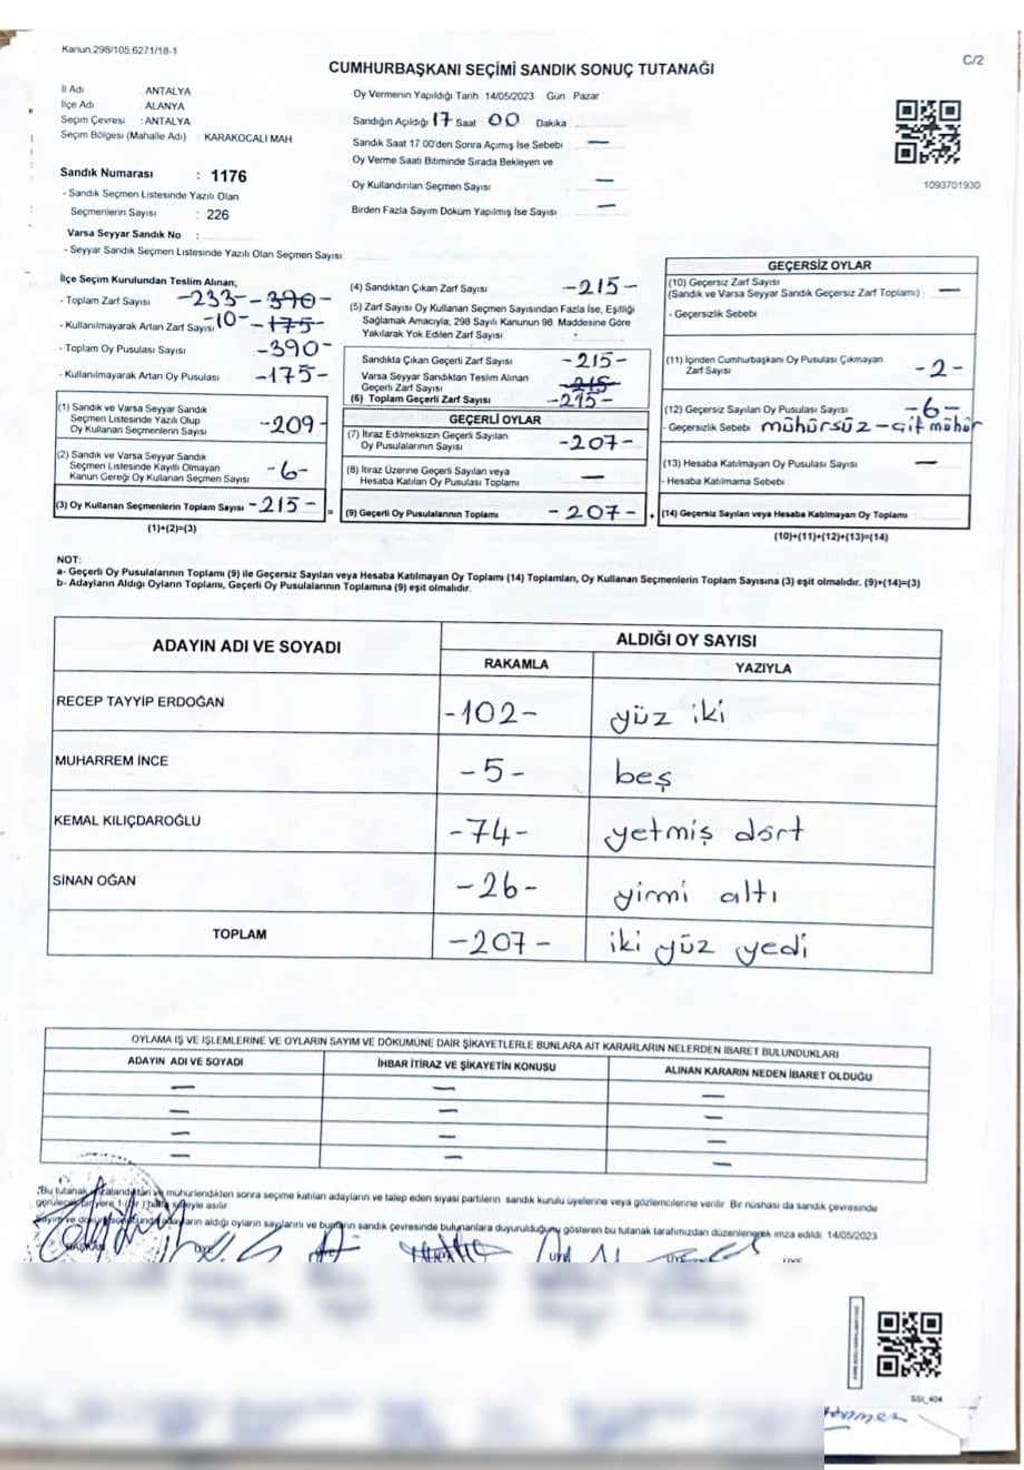 Kanun.298/105.6271/18-1
C/2
CUMHURBAŞKANI SEÇİMİ SANDIK SONUÇ TUTANAĞI
İl Adı : ANTALYA
İlçe Adı : ALANYA
Seçim Çevresi : ANTALYA
Seçim Bölgesi (Mahalle Adı) : KARAKOCALI MAH
Sandık Numarası : 1176
- Sandık Seçmen Listesinde Yazılı Olan
Seçmenlerin Sayısı : 226
Varsa Seyyar Sandık No :
- Seyyar Sandık Seçmen Listesinde Yazılı Olan Seçmen Sayısı
Oy Vermenin Yapıldığı Tarih 14/05/2023 Gün Pazar
Sandığın Açıldığı 17 Saat 00 Dakika
Sandık Saat 17 00'den Sonra Açımış İse Sebebi —
Oy Verme Saati Bitiminde Sırada Bekleyen ve
Oy Kullandırılan Seçmen Sayısı —
Birden Fazla Sayım Döküm Yapılmış İse Sayısı —
1093701930
İlçe Seçim Kurulundan Teslim Alınan,
- Toplam Zarf Sayısı -233- -390-
- Kullanılmayarak Artan Zarf Sayısı -10- -175-
- Toplam Oy Pusulası Sayısı -390-
- Kullanılmayarak Artan Oy Pusulası -175-
(1) Sandık ve Varsa Seyyar Sandık
Seçmen Listesinde Yazılı Olup
Oy Kullanan Seçmenlerin Sayısı -209-
(2) Sandık ve Varsa Seyyar Sandık
Seçmen Listesinde Kayıtlı Olmayan
Kanun Gereği Oy Kullanan Seçmen Sayısı -6-
(3) Oy Kullanan Seçmenlerin Toplam Sayısı -215- =
(1)+(2)=(3)
(4) Sandıktan Çıkan Zarf Sayısı -215-
(5) Zarf Sayısı Oy Kullanan Seçmen Sayısından Fazla İse, Eşitliği
Sağlamak Amacıyla; 298 Sayılı Kanunun 98. Maddesine Göre
Yakılarak Yok Edilen Zarf Sayısı
Sandıkta Çıkan Geçerli Zarf Sayısı -215-
Varsa Seyyar Sandıktan Teslim Alınan
Geçerli Zarf Sayısı -215-
(6) Toplam Geçerli Zarf Sayısı -215-
GEÇERLİ OYLAR
(7) İtiraz Edilmeksizin Geçerli Sayılan
Oy Pusulalarının Sayısı -207-
(8) İtiraz Üzerine Geçerli Sayılan veya
Hesaba Katılan Oy Pusulası Toplamı —
(9) Geçerli Oy Pusulalarının Toplamı -207- +
GEÇERSİZ OYLAR
(10) Geçersiz Zarf Sayısı
(Sandık ve Varsa Seyyar Sandık Geçersiz Zarf Toplamı) —
- Geçersizlik Sebebi
(11) İçinden Cumhurbaşkanı Oy Pusulası Çıkmayan
Zarf Sayısı -2-
(12) Geçersiz Sayılan Oy Pusulası Sayısı -6-
- Geçersizlik Sebebi mühürsüz-çift mühür
(13) Hesaba Katılmayan Oy Pusulası Sayısı —
- Hesaba Katılmama Sebebi
(14) Geçersiz Sayılan veya Hesaba Katılmayan Oy Toplamı
(10)+(11)+(12)+(13)=(14)
NOT:
a- Geçerli Oy Pusulalarının Toplamı (9) ile Geçersiz Sayılan veya Hesaba Katılmayan Oy Toplamı (14) Toplamları, Oy Kullanan Seçmenlerin Toplam Sayısına (3) eşit olmalıdır. (9)+(14)=(3)
b- Adayların Aldığı Oyların Toplamı, Geçerli Oy Pusulalarının Toplamına (9) eşit olmalıdır.
ADAYIN ADI VE SOYADI ALDIĞI OY SAYISI
RAKAMLA YAZIYLA
RECEP TAYYİP ERDOĞAN -102- yüz iki
MUHARREM İNCE -5- beş
KEMAL KILIÇDAROĞLU -74- yetmiş dört
SİNAN OĞAN -26- yirmi altı
TOPLAM -207- iki yüz yedi
OYLAMA İŞ VE İŞLEMLERİNE VE OYLARIN SAYIM VE DÖKÜMÜNE DAİR ŞİKAYETLERLE BUNLARA AİT KARARLARIN NELERDEN İBARET BULUNDUKLARI
ADAYIN ADI VE SOYADI İHBAR İTİRAZ VE ŞİKAYETİN KONUSU ALINAN KARARIN NEDEN İBARET OLDUĞU
— — —
— — —
— — —
— — —
Bu tutanak mühürlendikten sonra seçime katılan adayların ve talep eden siyasi partilerin sandık kurulu üyelerine veya gözlemcilerine verilir. Bir nüshası da sandık çevresinde
aldığı oyların sayılarını ve bunların sandık çevresinde bulunanlara duyurulduğunu gösteren bu tutanak tarafımızdan düzenlenerek imza edildi. 14/05/2023